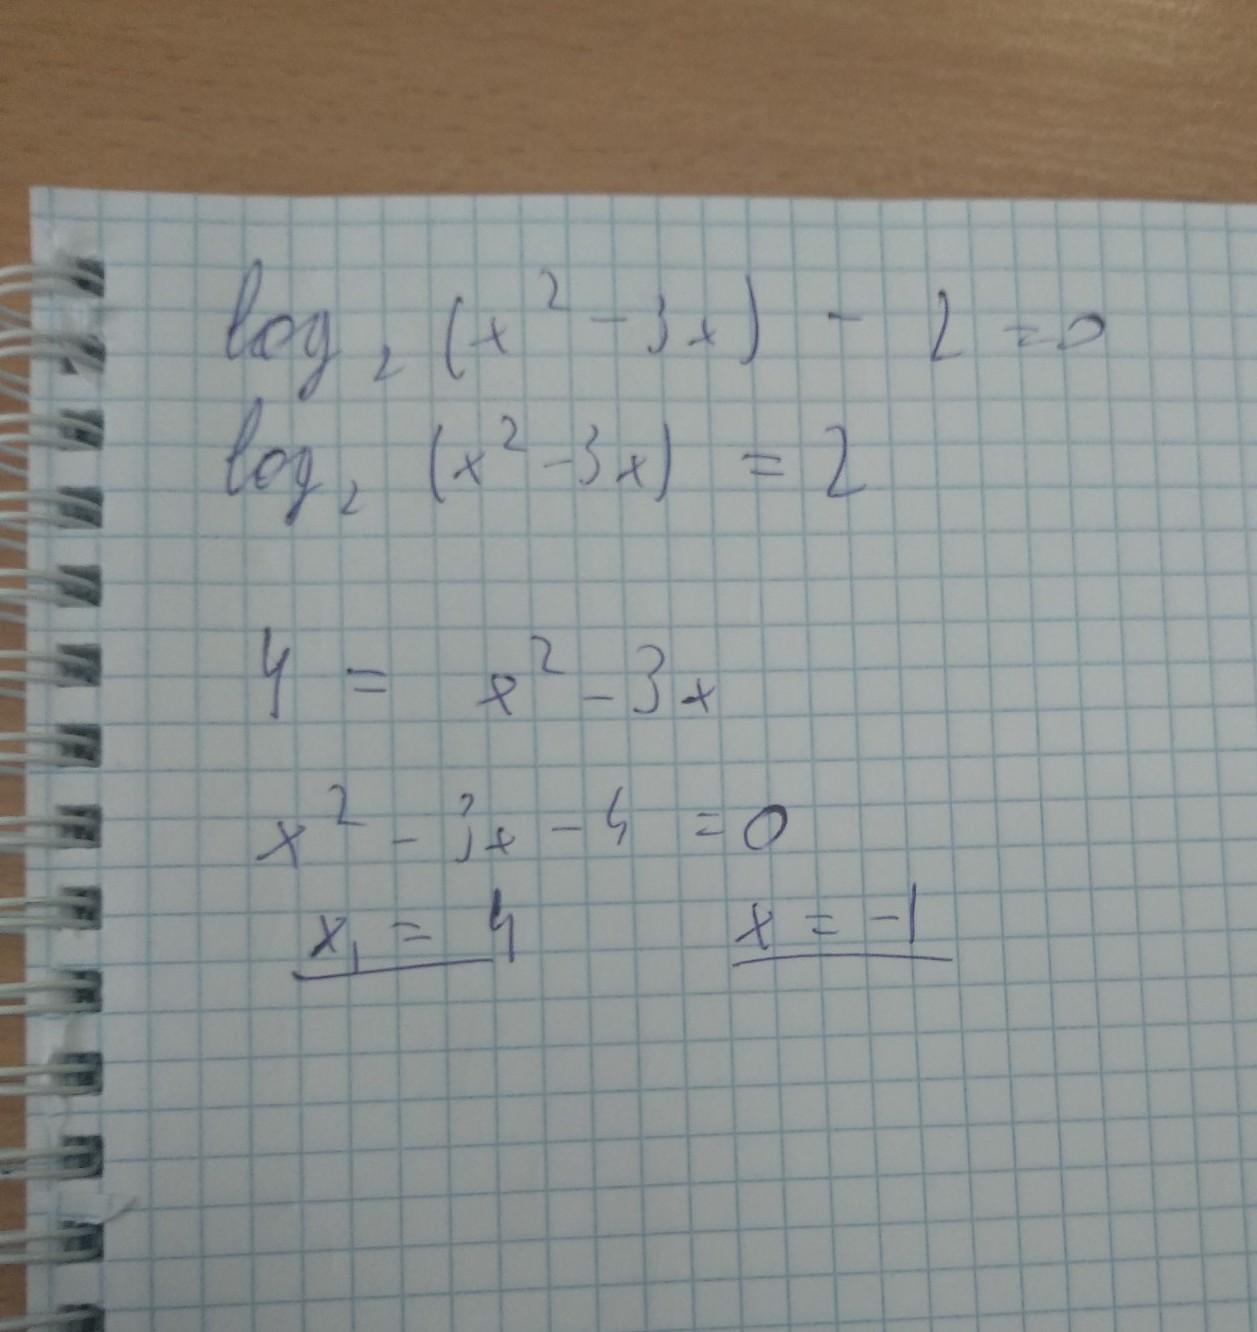 log₂ (x² - 3x) - 2 = 0
log₂ (x² - 3x) = 2
4 = x² - 3x
x² - 3x - 4 = 0
x₁ = 4 x = -1